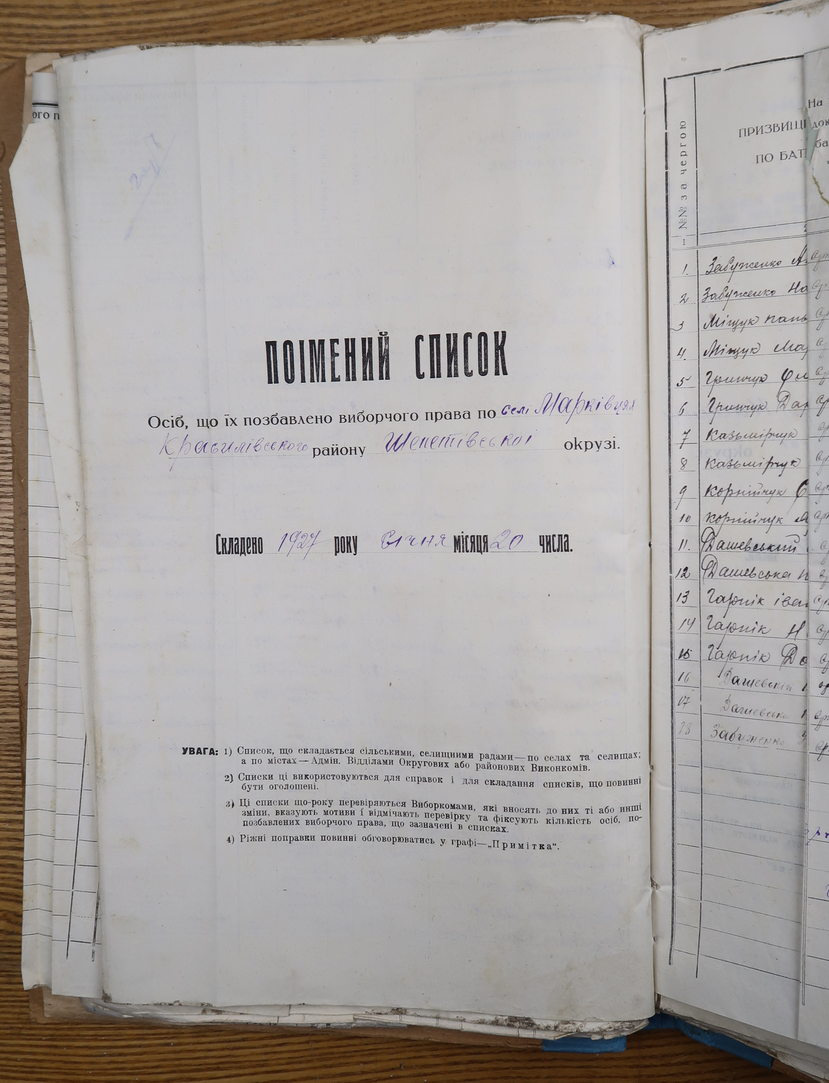 ого п
ПОІМЕНИЙ СПИСОК
Осіб, що їх позбавлено виборчого права по селі Марківцях
Красилівського району Шепетівської округзі.
Складено 1927 року Січня місяця 20 числа.
УВАГА: 1) Список, що складається сільськими, селищними радами—по селах та селищах;
а по містах—Адмін. Відділами Округових або районових Виконкомів.
2) Списки ці використовуються для справок і для складання списків, що повинні
бути оголошені.
3) Ці списки що-року перевіряються Виборкомами, які вносять до них ті або инші
зміни, вказують мотиви і відмічають перевірку та фіксують кількість осіб, по-
позбавлених виборчого права, що зазначені в списках.
4) Ріжні поправки повинні обговорюватись у графі—„Примітка“.
№№ за чергою
ПРИЗВИЩ
ПО БАТ
На
док
ба
1
1. Забуженко
2 Забуженко На
3 Міщук
4. Міщук Мар
5 Гринчук
6 Гринчук Дар
7 Казьмірчук
8 Казьмірчук
9 Корнійчук
10 Корнійчук
11. Дашевський
12 Дашевська
13 Гарпік іван
14 Гарпік Н
15 Гарпік До
16
17
18 Забуженко